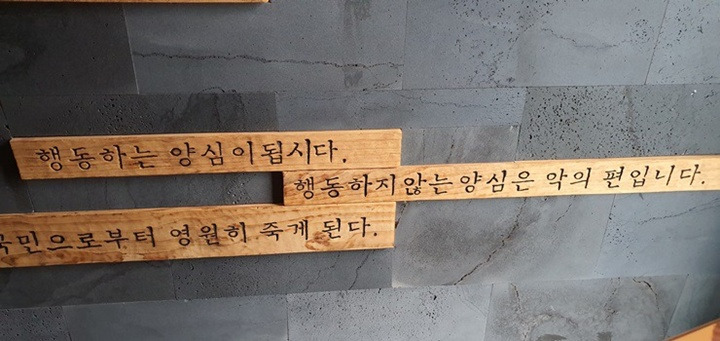 행동하는 양심이 됩시다.
행동하지 않는 양심은 악의 편입니다.
국민으로부터 영원히 죽게 된다.